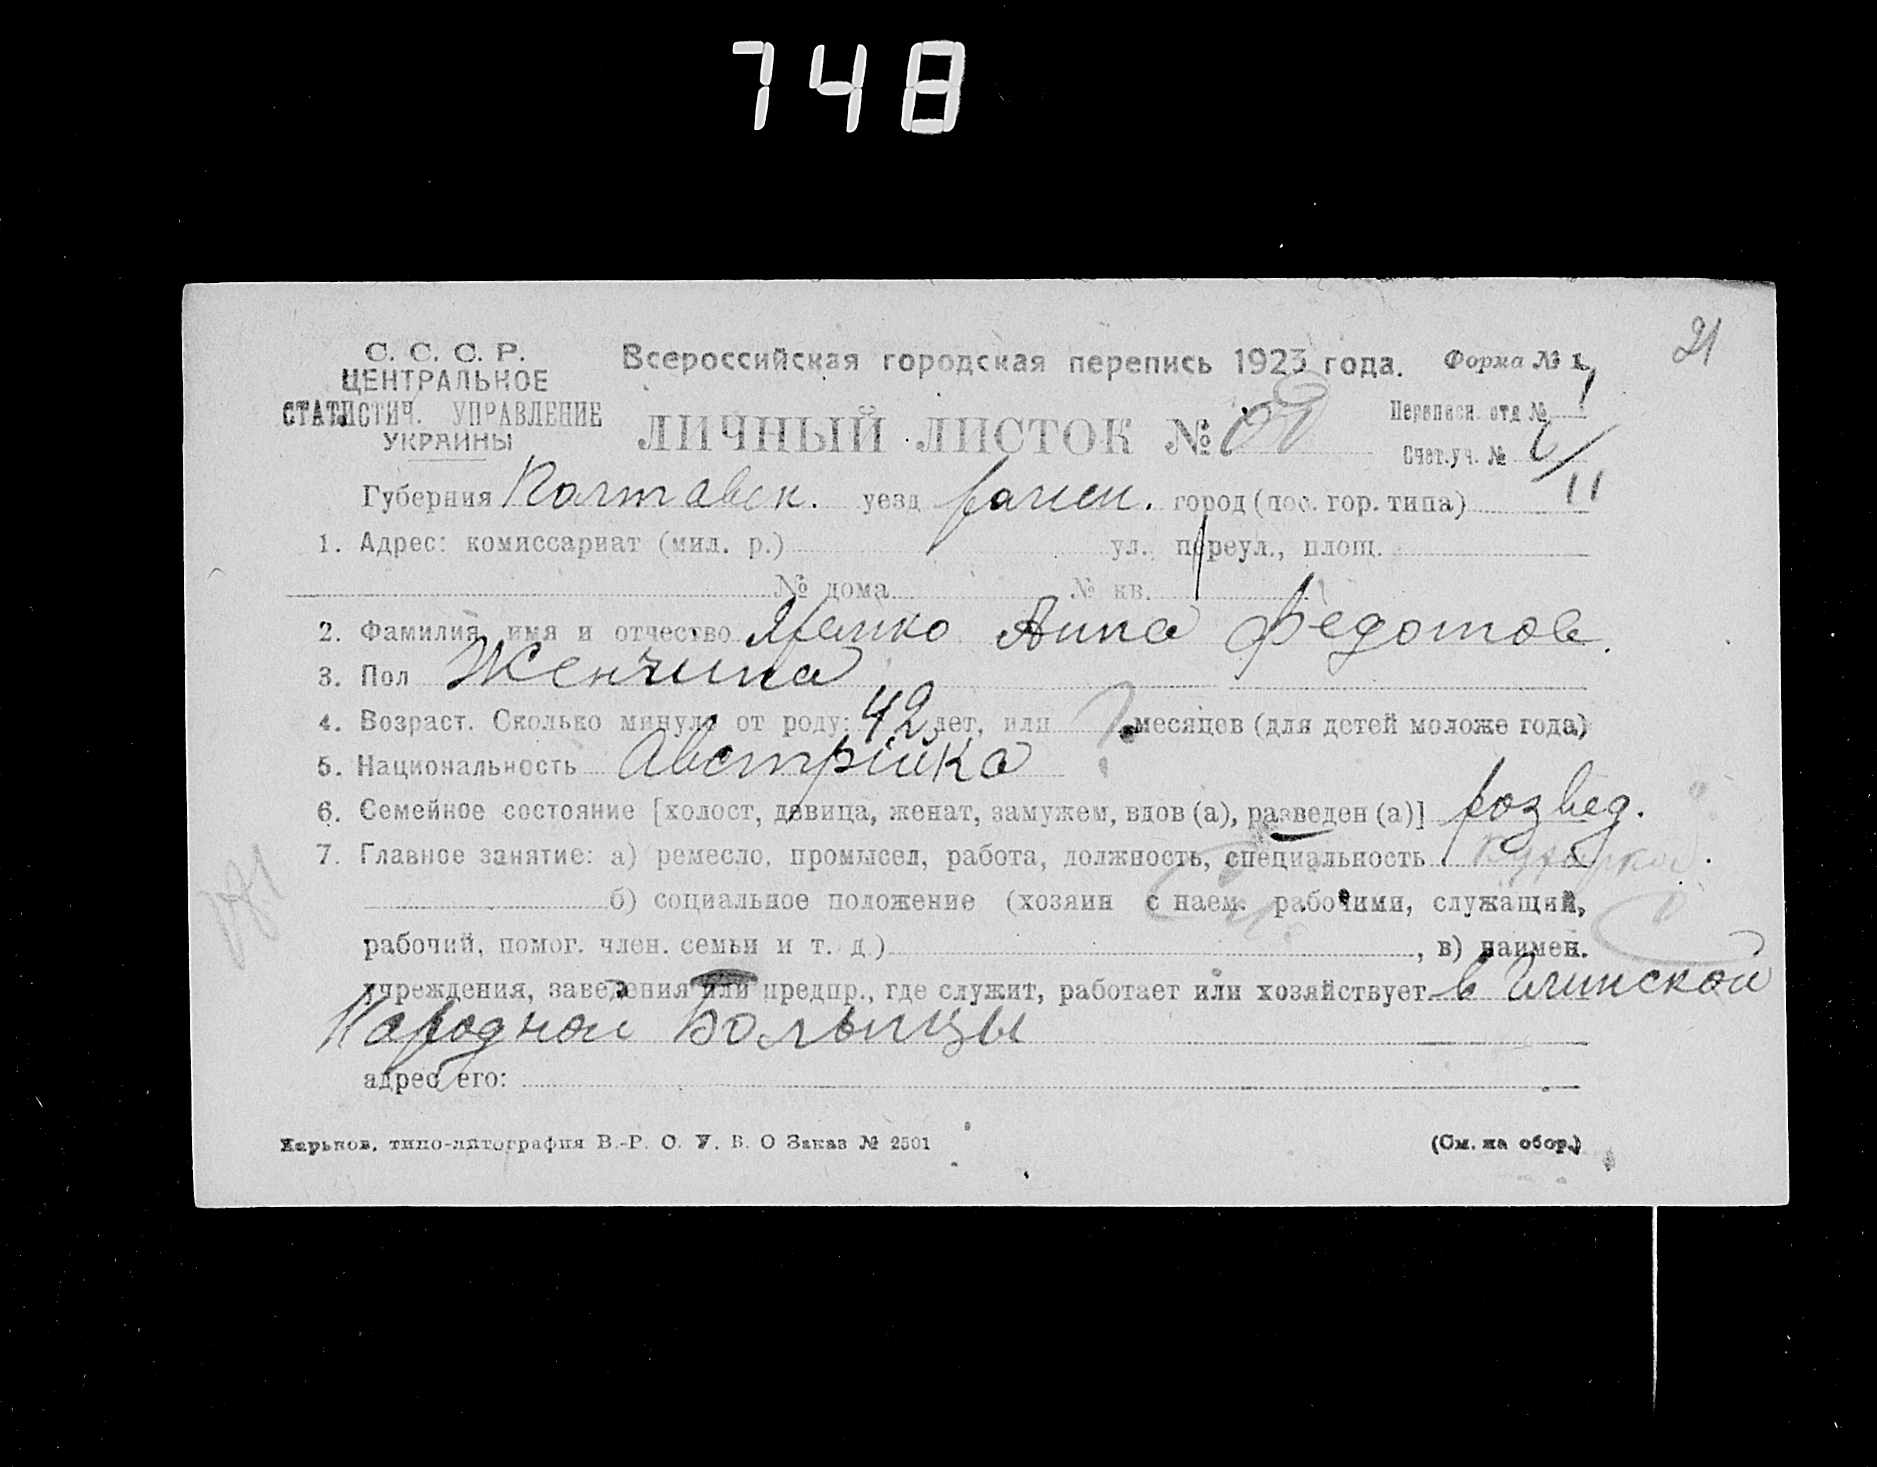 748
21
С. С. С. Р.
ЦЕНТРАЛЬНОЕ
СТАТИСТИЧ. УПРАВЛЕНИЕ
УКРАИНЫ
Всероссийская городская перепись 1923 года. Форма № 1
ЛИЧНЫЙ ЛИСТОК №
Переписн. отд № 1
Счет.уч. №
11
Губерния Полтавск. уезд город (пос. гор. типа)
1. Адрес: комиссариат (мил. р.) ул. переул., площ.
№ дома № кв.
2. Фамилия, имя и отчество Яремко Анна Федотов.
3. Пол Женчина
4. Возраст. Сколько минуло от роду: 42 лет, или месяцев (для детей моложе года)
5. Национальность Австрийка
6. Семейное состояние [холост, девица, женат, замужем, вдов (а), разведен (а)] розвед.
7. Главное занятие: а) ремесло, промысел, работа, должность, специальность
б) социальное положение (хозяин с наем. рабочими, служащий,
рабочий, помог. член. семьи и т. д.) , в) наимен.
учреждения, заведения или предпр., где служит, работает или хозяйствует в Глинской
Народной Больницы
адрес его:
Харьков, типо-литография В.-Р. О. У. В. О Заказ № 2501
(См. на обор.)